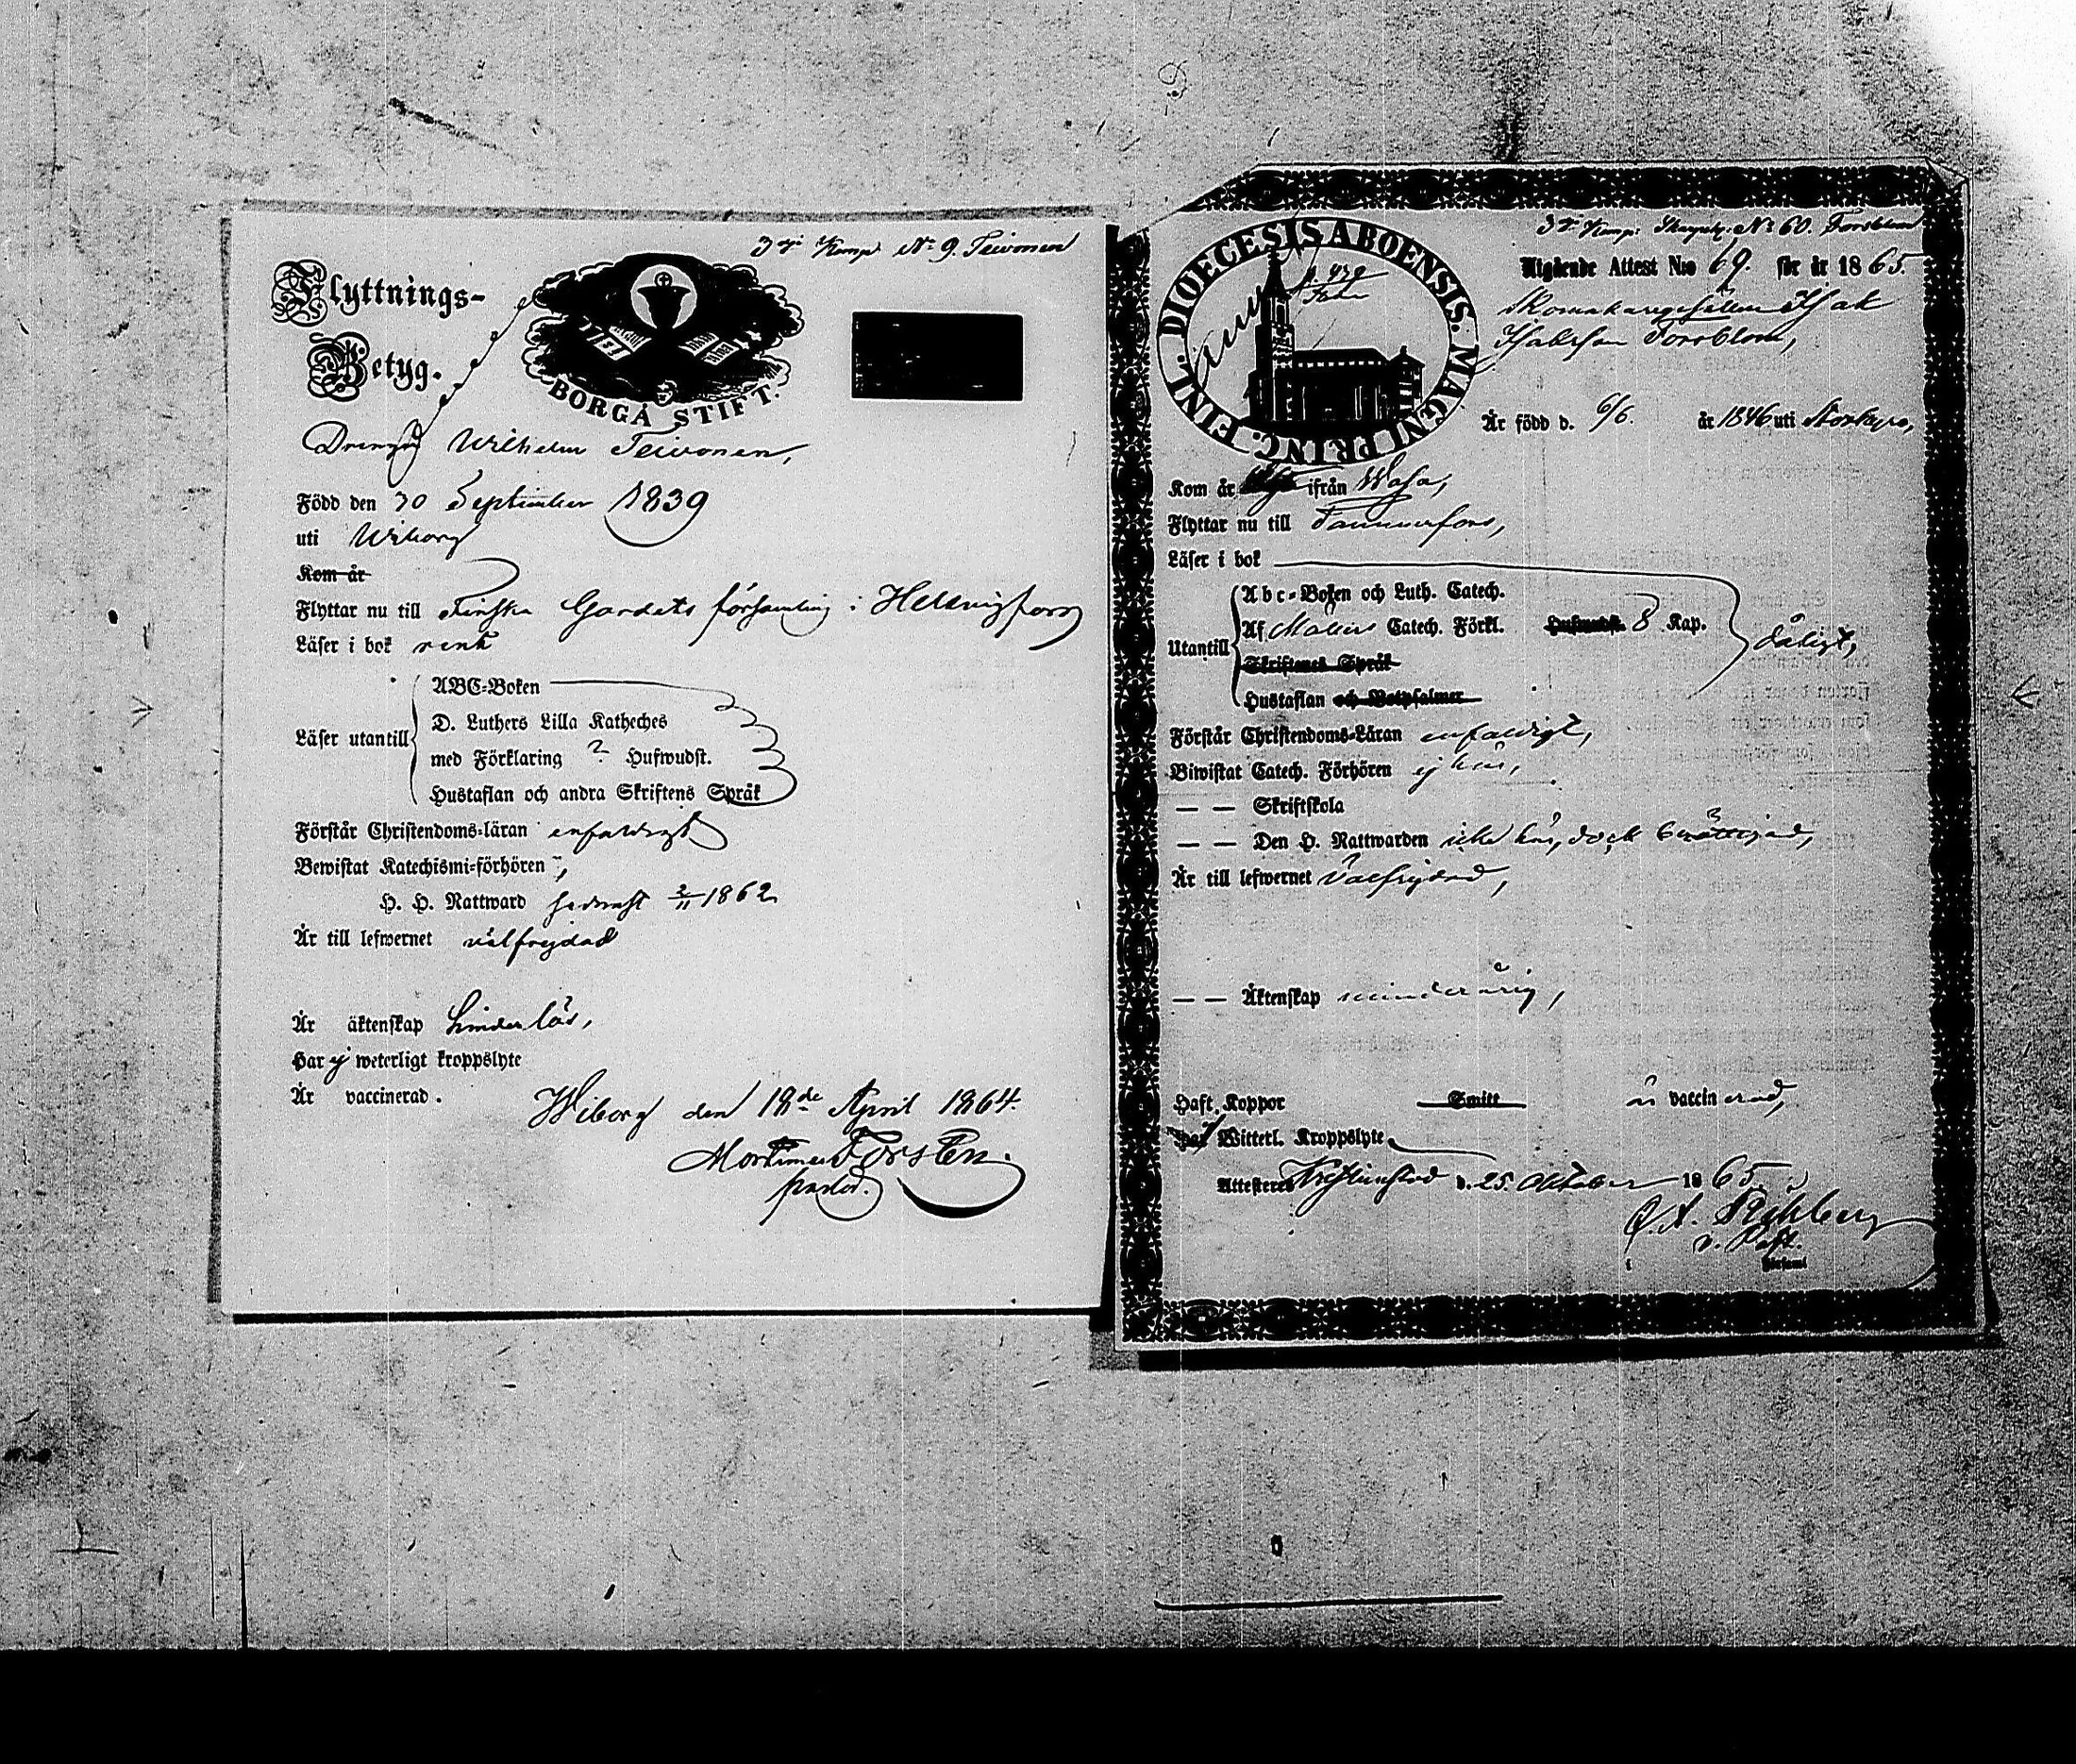 3dje Komp. No 9. Teivonen
Flyttnings-
Betyg.
BORGÅ STIFT.
Drengen Wilhelm Teivonen,
Född den 30 September 1839
uti Wiborg
Kom år
Flyttar nu till Finska Gardets församling i Helsingfors
Läser i bok rent
Läser utantill
ABC-Boken
D. Luthers Lilla Katheches
med Förklaring 2 Hufwudst.
Hustaflan och andra Skriftens Språk
Förstår Christendoms-läran enfaldigt
Bewistat Katechismi-förhören
H. H. Nattward sednast 2/11 1862
Är till lefwernet välfrejdad
Är äktenskap hinderlös,
Har ej weterligt kroppslyte
Är vaccinerad.
Wiborg den 18de April 1864.
Forstén.
pastor.
DIOECESIS ABOENSIS. MAGNI PRINC. FINL.
3dje Komp. No 60. Forsblom
Utgående Attest N:o 69. för år 1865.
Skomakaregesällen Isak
Isaksson Forsblom,
Är född d. 6/6. år 1846 uti Storkyro,
Kom år ifrån Wasa,
Flyttar nu till Tammerfors,
Läser i bok
Utantill
Abc-Boken och Luth. Catech.
Af Catech. Förkl. Hufwudst. 8 Kap.
dåligt,
Skriftenes Språk
Hustaflan och Botpsalmer
Förstår Christendoms-Läran enfaldigt,
Biwistat Catech. Förhören ej här,
— — Skriftskola
— — Den H. Nattwarden icke här, dock berättigad,
Är till lefwernet välfrejdad,
— — Äktenskap minderårig,
Haft Koppor Smitt är vaccinerad,
Har ej Witterl. Kroppslyte
Attesteras Kristinestad d. 25. Oktober 1865.
v. Past.